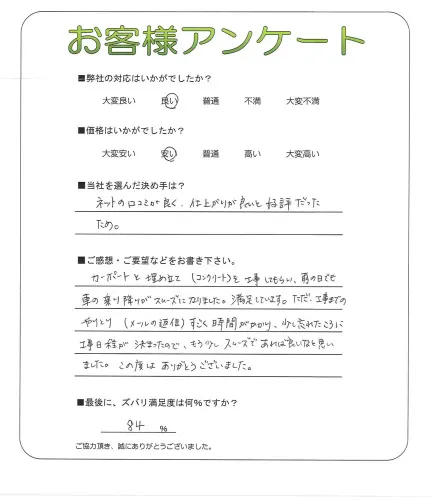 お客様アンケート
■弊社の対応はいかがでしたか?
大変良い 良い 普通 不満 大変不満
■価格はいかがでしたか?
大変安い 安い 普通 高い 大変高い
■当社を選んだ決め手は?
ネットの口コミが良く、仕上がりが良いと好評だった
ため。
■ご感想・ご要望などをお書き下さい。
カーポートと埋め立て(コンクリート)を工事してもらい、雨の日でも
車の乗り降りがスムーズになりました。満足しています。ただ、工事までの
やりとり(メールの返信)すごく時間がかかり、少し忘れたころに
工事日程が決まったので、もう少しスムーズであれば良いなと思い
ました。この度はありがとうございました。
■最後に、ズバリ満足度は何%ですか?
84 %
ご協力頂き、誠にありがとうございました。